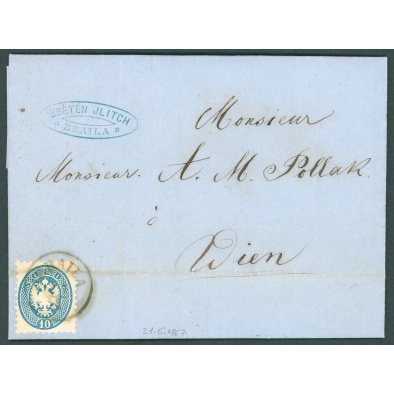 JLITCH
BRAILA
Monsieur
Monsieur. A. M. Pollak.
à
Wien
10
21.5.1867